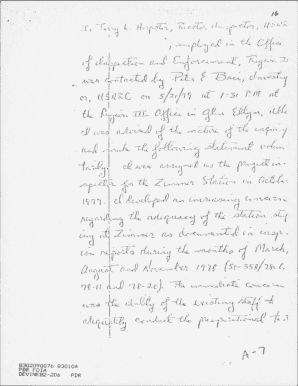 16
I, Terry L. Harpster, Reactor Inspector, USNRC
employed in the Office
of Inspection and Enforcement, Region III
was contacted by Peter E. Baci, Investigator,
USNRC on 5/21/79 at 1:31 P.M. at
the Region III Office in Glen Ellyn, Ill.
I was advised of the nature of the inquiry
and make the following statement voluntarily.
I was assigned as the project
inspector for the Zimmer Station in October
1977. I developed an increasing concern
regarding the adequacy of the station
staffing at Zimmer as documented in
inspection reports during the months of March,
August and November 1978 (50-358/78-6,
78-11 and 78-20). The immediate concern
was the ability of the existing staff to
adequately conduct the preoperational
A-7
8302090076 830104
PDR FOIA
DEVINE82-206 PDR